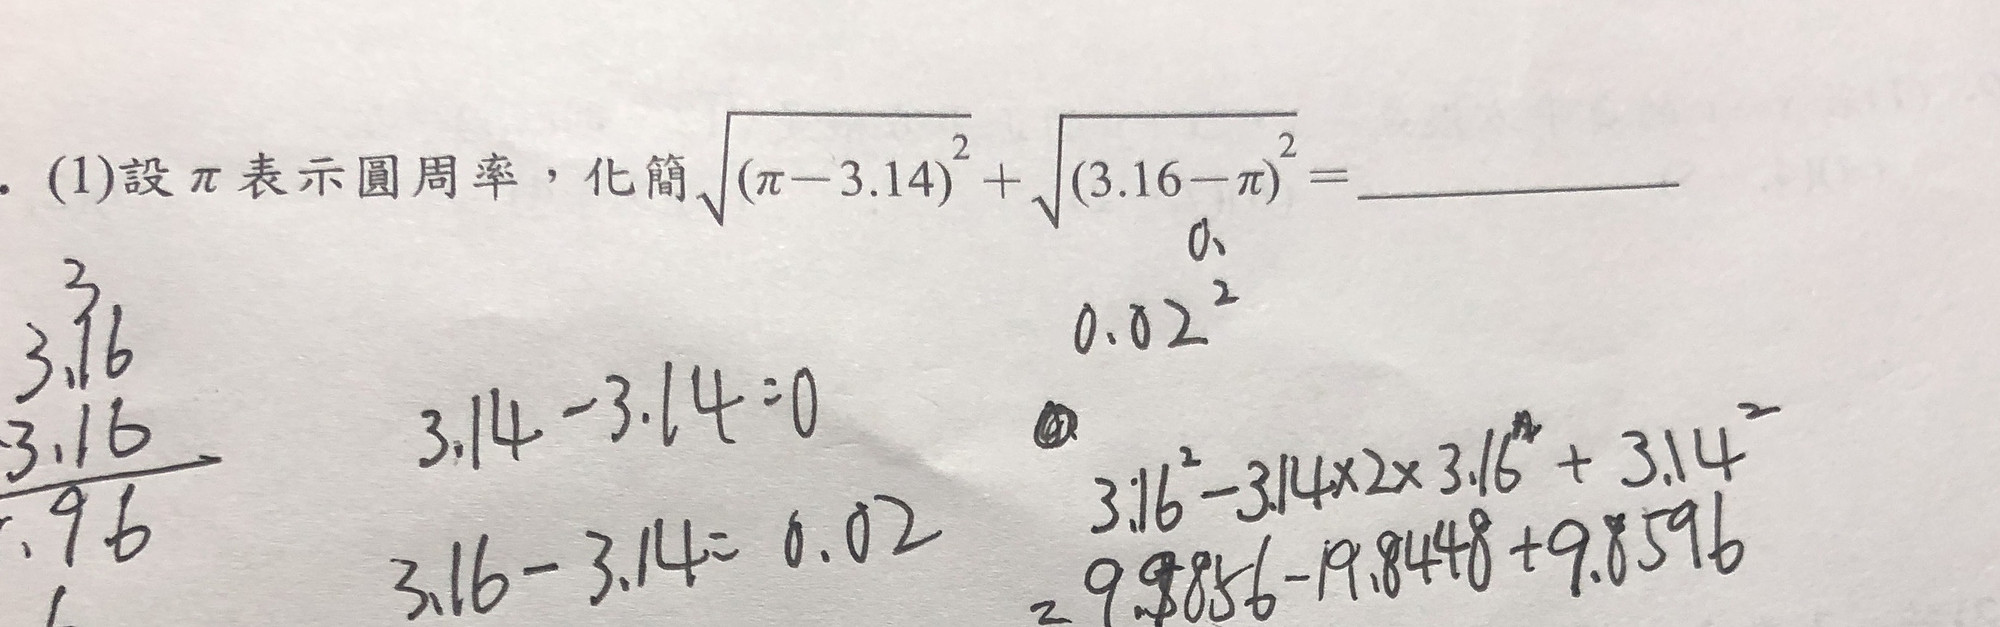 . (1)設 π 表示圓周率，化簡√(π－3.14)² + √(3.16－π)² = ________
0.
0.02²
3
3.16
3.16
.96
3.14-3.14=0
3.16-3.14=0.02
3.16²-3.14×2×3.16+3.14²
=9.9856-19.8448+9.8596